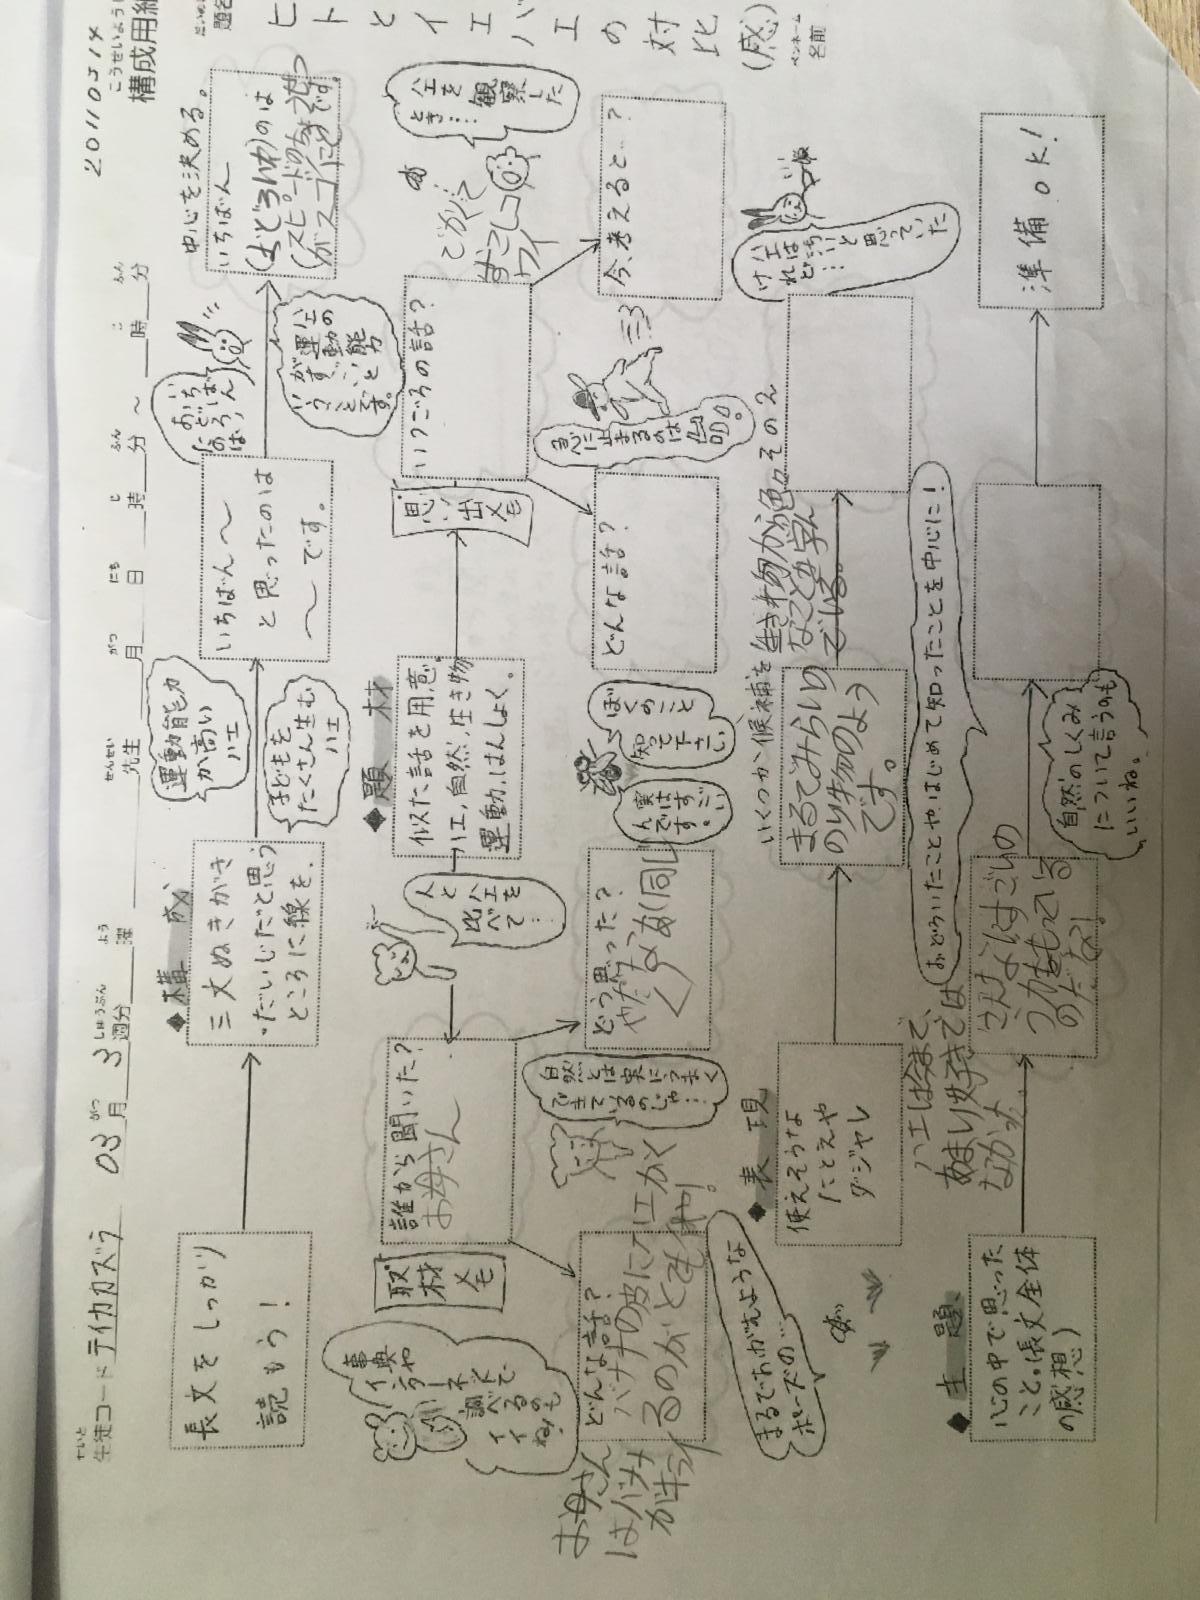 20110314
こうせいようし
構成用紙
せいと
生徒コード テイカカズラ 03月 3週分 曜 先生 月 日 時 分 ～ 時 分
題名
ヒトとイエバエの対比(感)
ペンネーム
名前
長文をしっかり
読もう！
◆構成
三文ぬきがき
・だいじだと思う
ところに線を。
運動能力
が高い
ハエ
子どもを
たくさん生む
ハエ
いちばん～
と思ったのは
～です。
おいちばん
おどろいたのは
ハエの
運動能力
がすごい
ということ
です。
中心を決める。
いちばん
(おどろいた)のは
(スピードのちょうせつ
がスゴイ)です。
事典や
インター
ネットで
調べるのも
イイね！
取材メモ
誰から聞いた？
お母さん
人と
ハエを
比べて…
◆題材
似た話を用意。
ハエ，自然，生き物
運動，はんしょく。
思い出メモ
いつごろの話？
こがくて
すこし
コワイ
ハエを
観察した
とき…
お母さん
はバメメ
がキライ
どんな話？
バナナの皮にハエがく
るのがとても
自然とは実にうまく
できているのじゃ…
どう思った？
やだなぁ(同じ
く)
実はすごい
んです。
ぼくのこと
知って下さい
どんな話？
急に止まるのは
今、考えると？
まるでちがえような
ポーズの…
◆表現
使えそうな
たとえや
ダジャレ
いくつか候補を
まるでみらいの
のり物のよう
です。
生き物から色々
なことを学ん
でいる。
その2
ハエ
けれは
どちら
いいと
思っていた
◆主題
心の中で思った
こと。(長文全体
の感想)
ハエは今まで、
あまり好きでは
なかった。
おどろいたことや、はじめて知ったことを中心に！
こんなにすごいの
うカをもっている
のだな！
自然のしくみ
について言うのも
いいね。
準備OK！